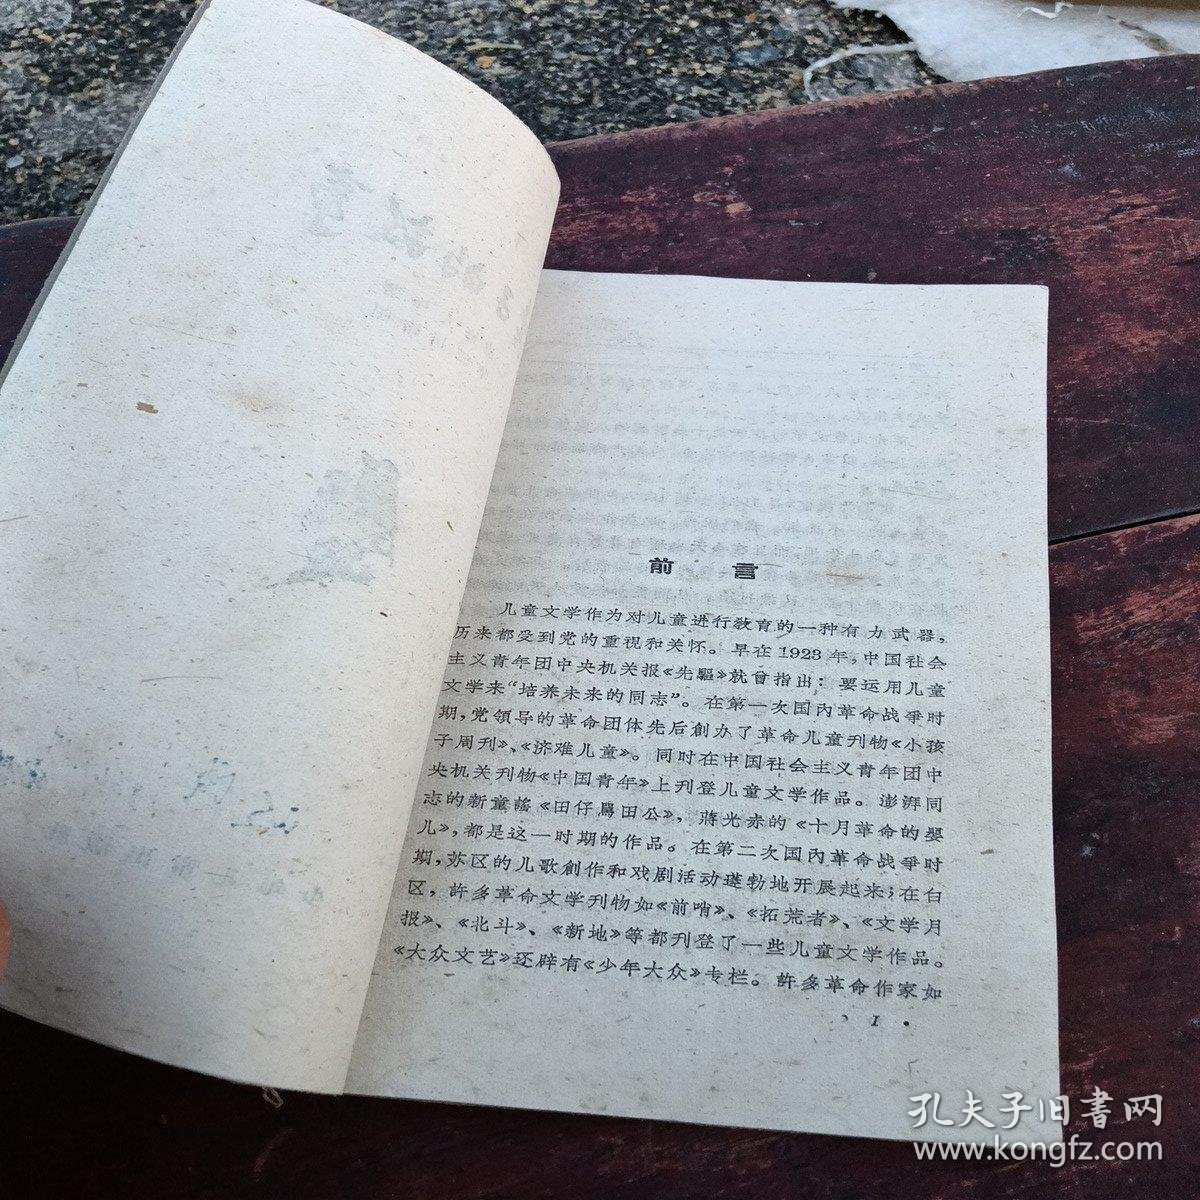 前言
儿童文学作为对儿童进行敎育的一种有力武器，
历来都受到党的重視和关怀。早在1923年，中国社会
主义青年团中央机关报《先驅》就曾指出：要运用儿童
文学来“培养未来的同志”。在第一次国內革命战爭时
期，党領导的革命团体先后創办了革命儿童刊物《小孩
子周刊》、《济难儿童》。同时在中国社会主义青年团中
央机关刊物《中国青年》上刊登儿童文学作品。澎湃同
志的新童謠《田仔駡田公》，蔣光赤的《十月革命的嬰
儿》，都是这一时期的作品。在第二次国內革命战爭时
期，苏区的儿歌創作和戏剧活动蓬勃地开展起来；在白
区，許多革命文学刊物如《前哨》、《拓荒者》、《文学月
报》、《北斗》、《新地》等都刊登了一些儿童文学作品。
《大众文艺》还辟有《少年大众》专栏。許多革命作家如
· 1 ·
孔夫子旧書网
www.kongfz.com